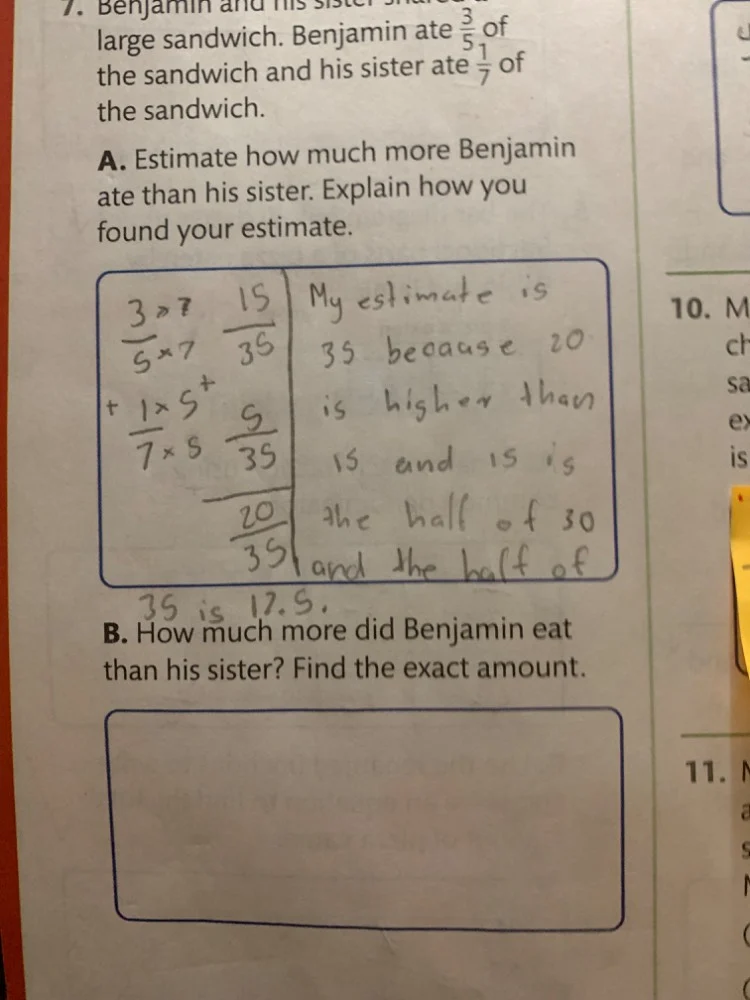 7. Benjamin and his sister shared a
large sandwich. Benjamin ate 3/5 of
the sandwich and his sister ate 1/7 of
the sandwich.
A. Estimate how much more Benjamin
ate than his sister. Explain how you
found your estimate.
3 × 7 15
5 × 7 35
+ 1 × 5 + 5
7 × 5 35
20
35
My estimate is
35 because 20
is higher than
15 and 15 is
the half of 30
and the half of
35 is 17.5.
B. How much more did Benjamin eat
than his sister? Find the exact amount.
10. M
ch
sa
ex
is
11.